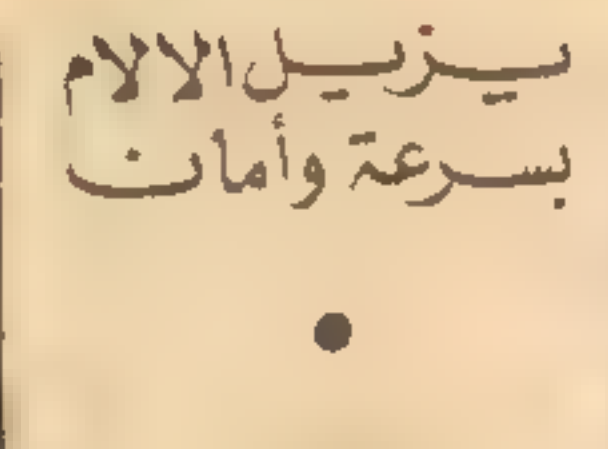 يزيل الالام
بسرعة وأمان